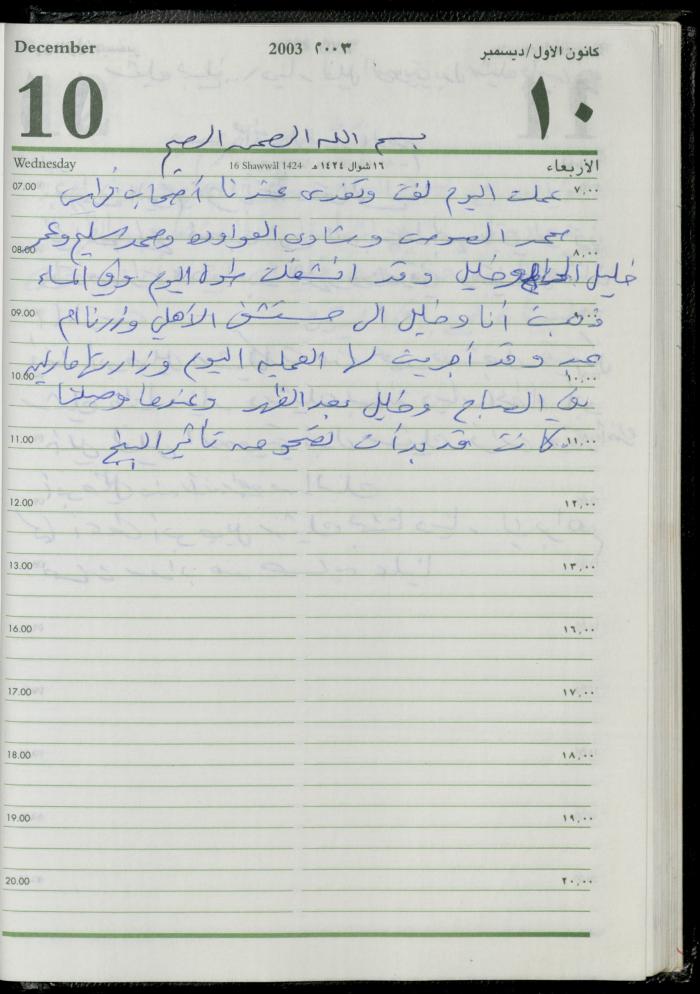 December 2003 ٢٠٠٣ كانون الأول/ديسمبر
10 ١٠
بسم الله الرحمن الرحيم
Wednesday 16 Shawwâl 1424 ١٦ شوال ١٤٢٤ هـ الأربعاء
07.00 ٧,٠٠
عملت اليوم لفت وتغدى عندنا أصحاب فراس
محمد الصوص وشادي العواوده ومحمد سليم وعمر
08.00 ٨,٠٠
خليل وخليل وقد انشغلت طوال اليوم وفي المساء
09.00
ذهبت أنا وخليل الى مستشفى الأهلي وزرنا ام
عبد وقد أجريت لها العملية اليوم وزارتها
10.00 ١٠,٠٠
في الصباح وخليل بعد الظهر وعندما وصلنا
11.00 ١١,٠٠
كانت قد بدأت تصحو من تأثير البنج
12.00 ١٢,٠٠
13.00 ١٣,٠٠
16.00 ١٦,٠٠
17.00 ١٧,٠٠
18.00 ١٨,٠٠
19.00 ١٩,٠٠
20.00 ٢٠,٠٠